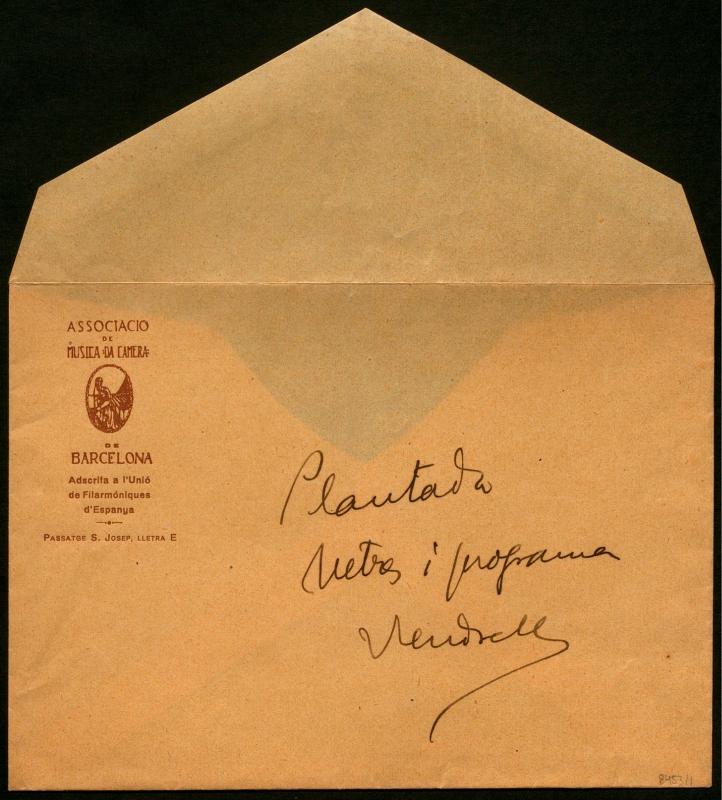 ASSOCIACIO
DE
MUSICA "DA CAMERA"
DE
BARCELONA
Adscrita a l'Unió
de Filarmóniques
d'Espanya
PASSATGE S. JOSEP, LLETRA E
Plantada
i programa
Vendrell
8453/1